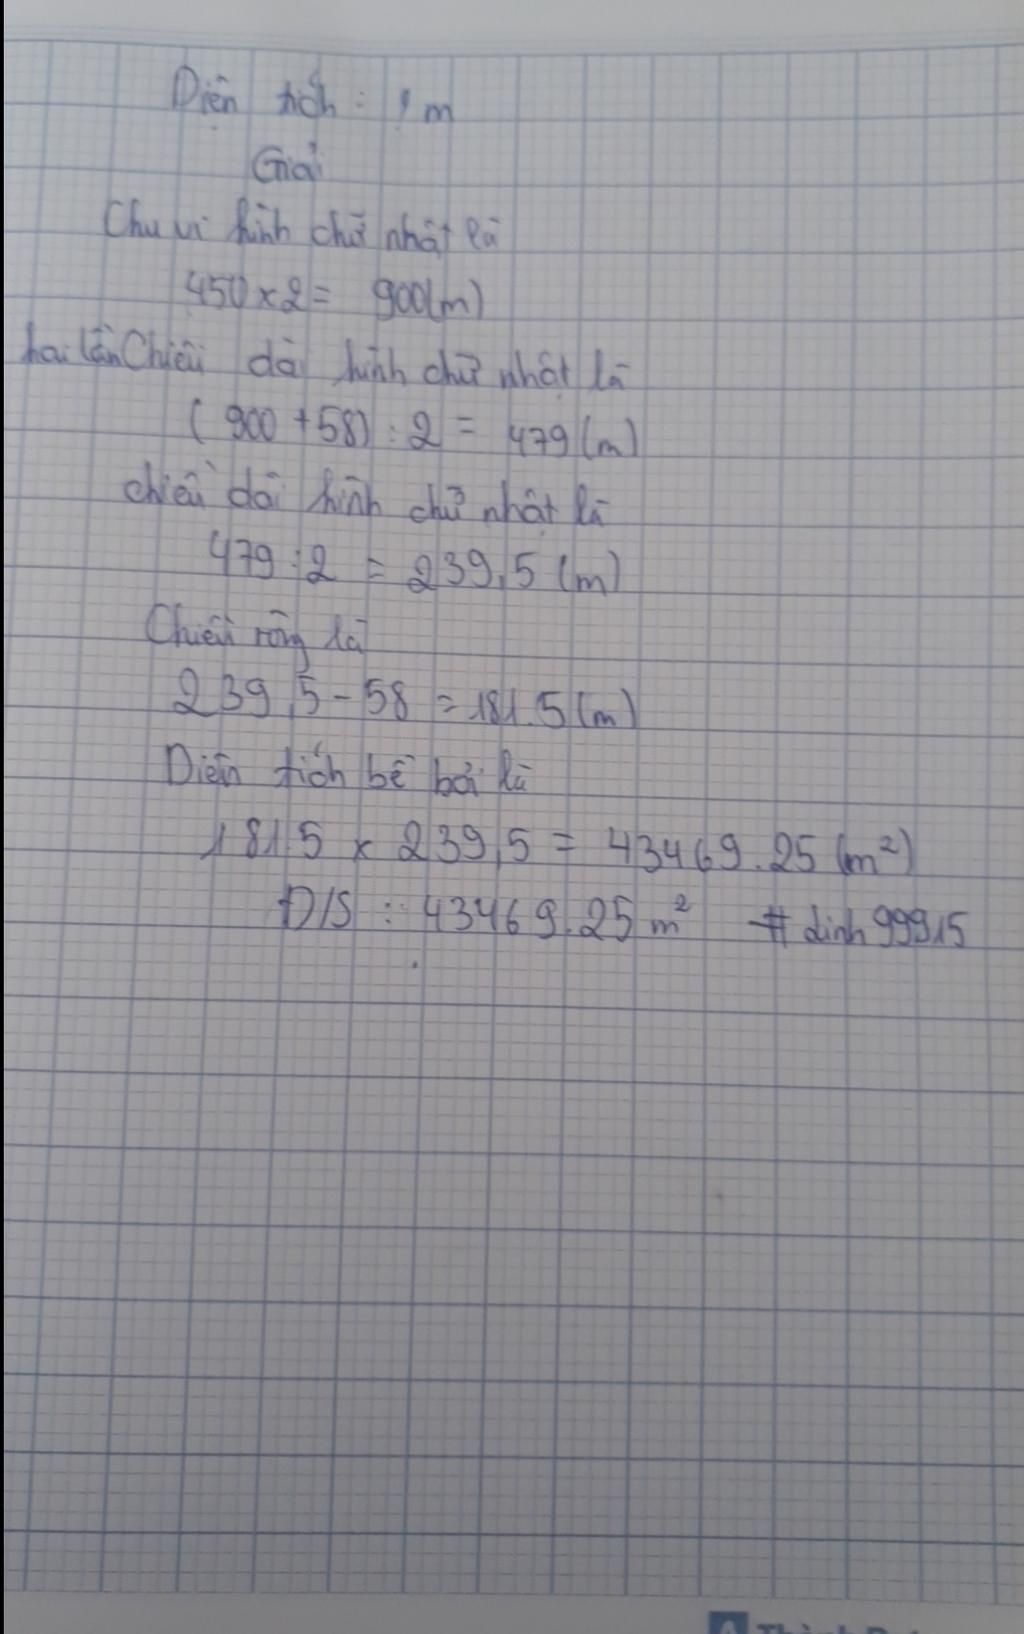 Diện tích: ? m
Giải
Chu vi hình chữ nhật là
450 x 2 = 900(m)
hai lần Chiều dài hình chữ nhật là
(900 + 58) : 2 = 479 (m)
chiều dài hình chữ nhật là
479 : 2 = 239,5 (m)
Chiều rộng là
239,5 - 58 = 181.5 (m)
Diện tích bể bơi là
181.5 x 239,5 = 43469.25 (m²)
Đ/S : 43469.25 m² # dinh 99915